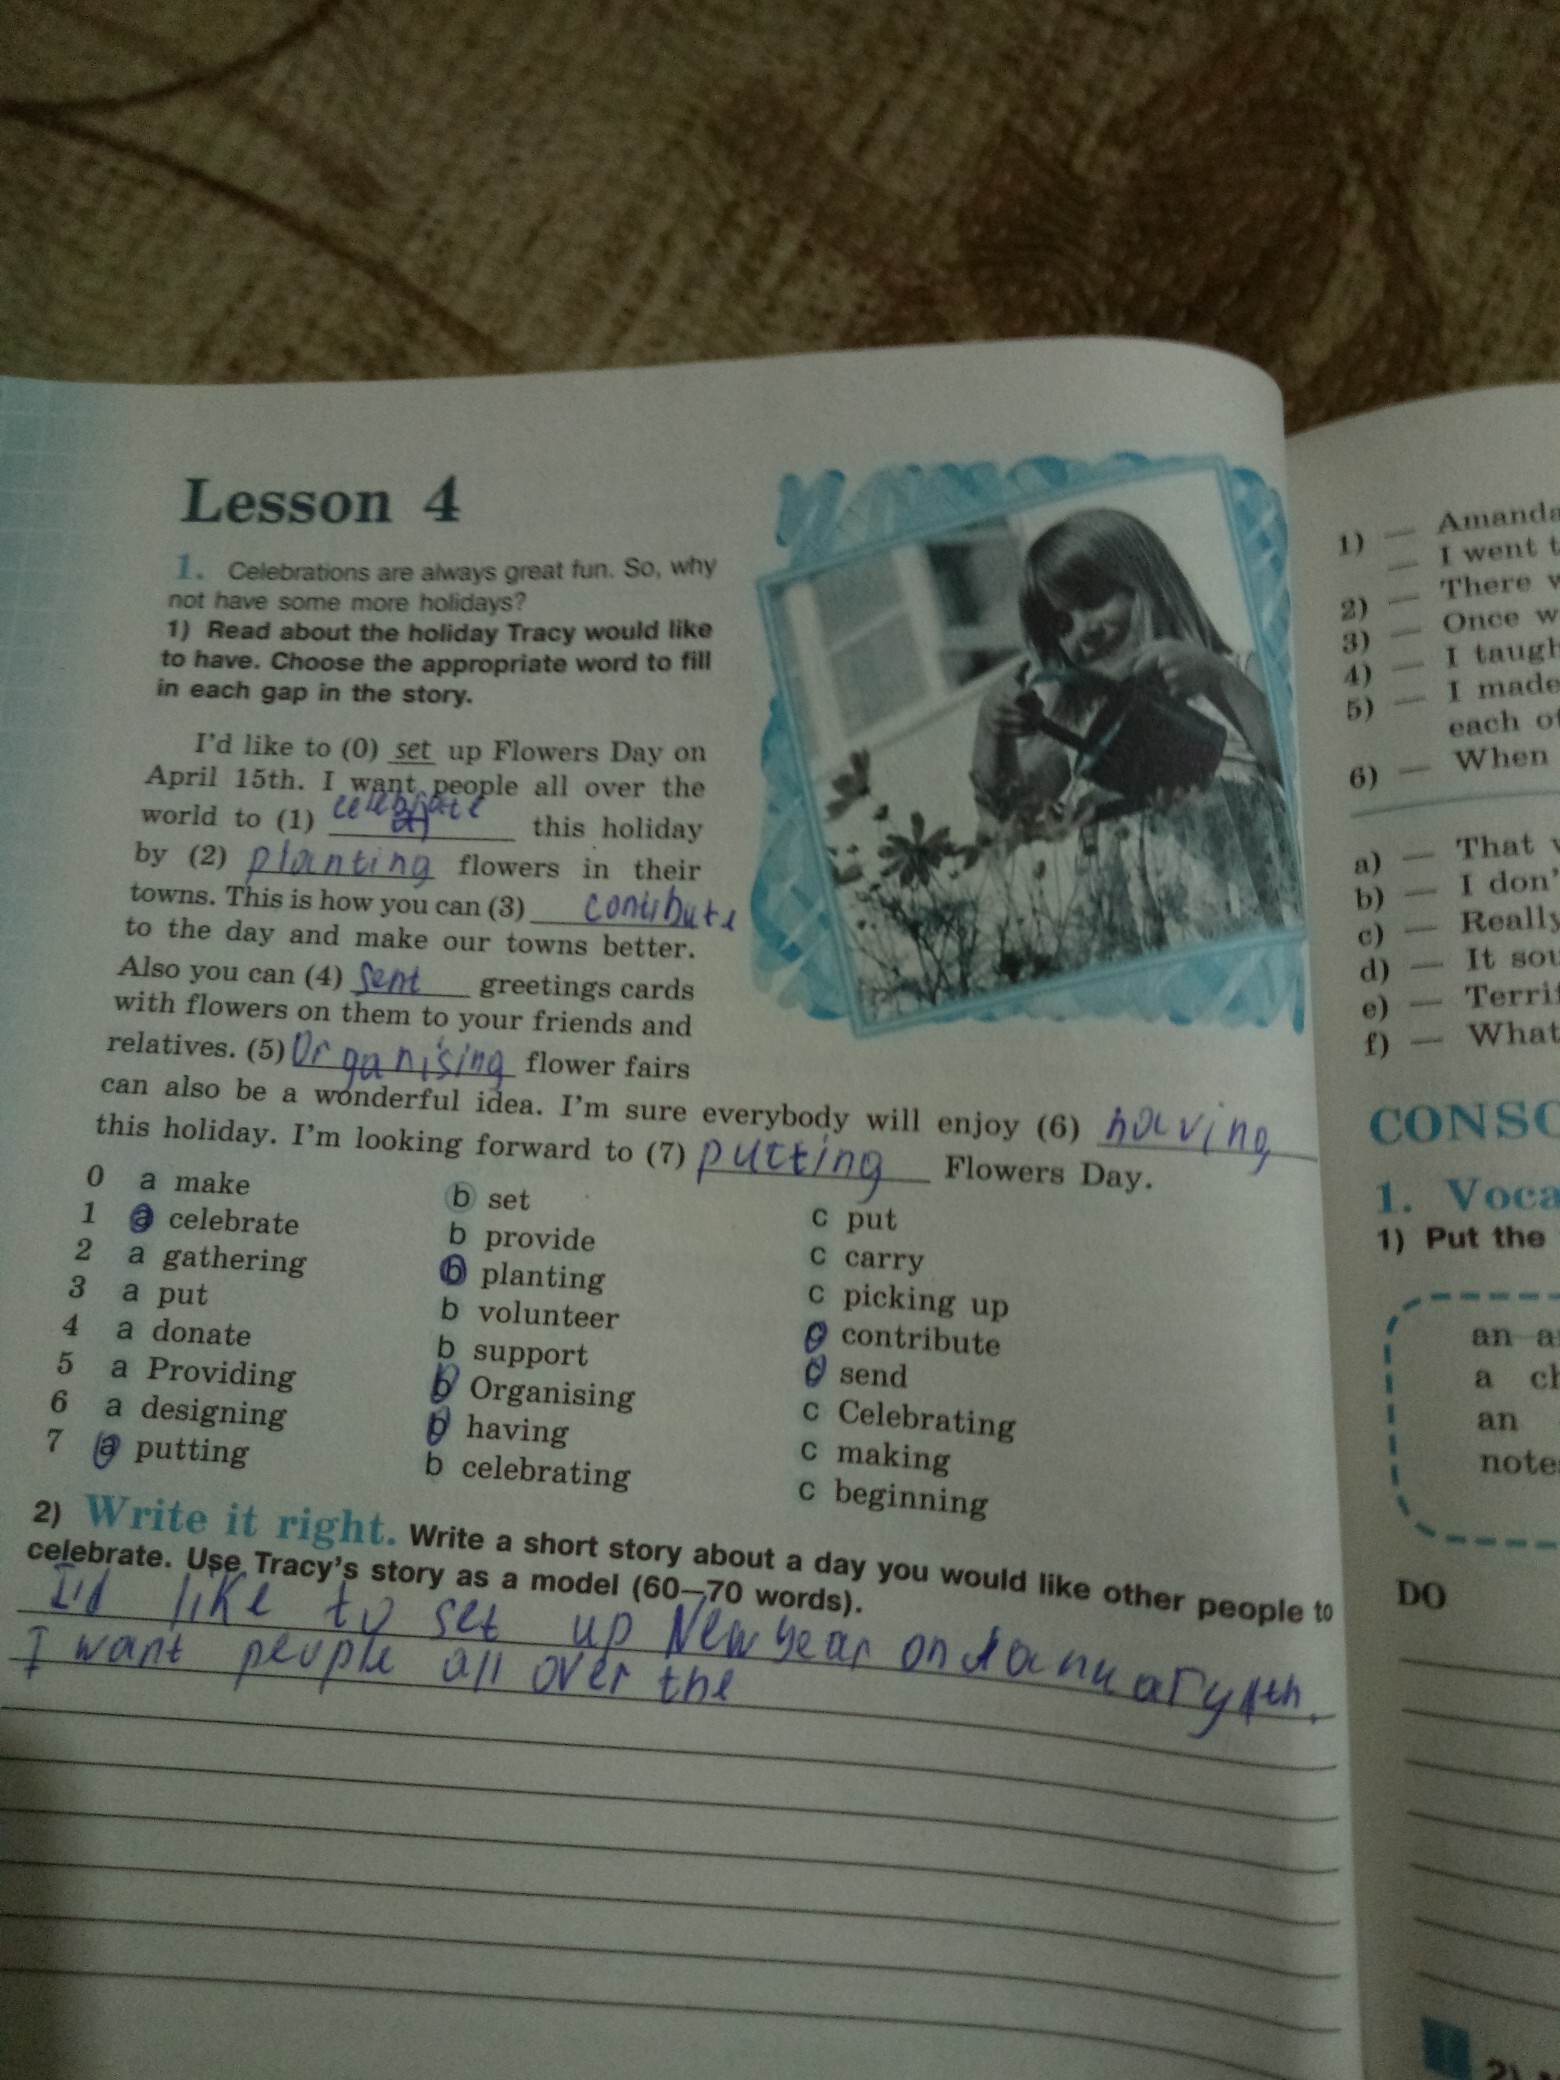 Lesson 4
1. Celebrations are always great fun. So, why
not have some more holidays?
1) Read about the holiday Tracy would like
to have. Choose the appropriate word to fill
in each gap in the story.
I'd like to (0) set up Flowers Day on
April 15th. I want people all over the
world to (1) celebrate this holiday
by (2) planting flowers in their
towns. This is how you can (3) contibute
to the day and make our towns better.
Also you can (4) sent greetings cards
with flowers on them to your friends and
relatives. (5) Organising flower fairs
can also be a wonderful idea. I'm sure everybody will enjoy (6) having
this holiday. I'm looking forward to (7) putting Flowers Day.
0 a make b set c put
1 a celebrate b provide c carry
2 a gathering b planting c picking up
3 a put b volunteer c contribute
4 a donate b support c send
5 a Providing b Organising c Celebrating
6 a designing b having c making
7 a putting b celebrating c beginning
2) Write it right. Write a short story about a day you would like other people to
celebrate. Use Tracy's story as a model (60—70 words).
I'd like to set up New year on January 1th.
I want people all over the
1) — Amanda
— I went
There
2) — Once w
3) — I taugh
4) — I made
5) each of
6) — When
a) — That
b) — I don'
c) — Really
d) — It sou
e) — Terrif
f) — What
CONSO
1. Voca
1) Put the
an a
a ch
an
note
DO
2)